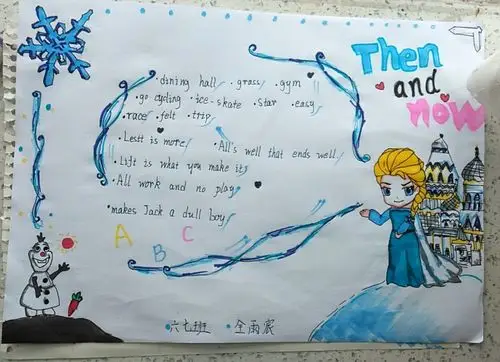 Then
and
now
·dining hall ·grass ·gym
·go cycling ·ice-skate ·star ·easy
·race ·felt ·trip
·Lestt is more
·All's well that ends well
·Lift is what you make it
·All work and no play
·makes Jack a dull boy
A B C
·六七班 ·全雨宸